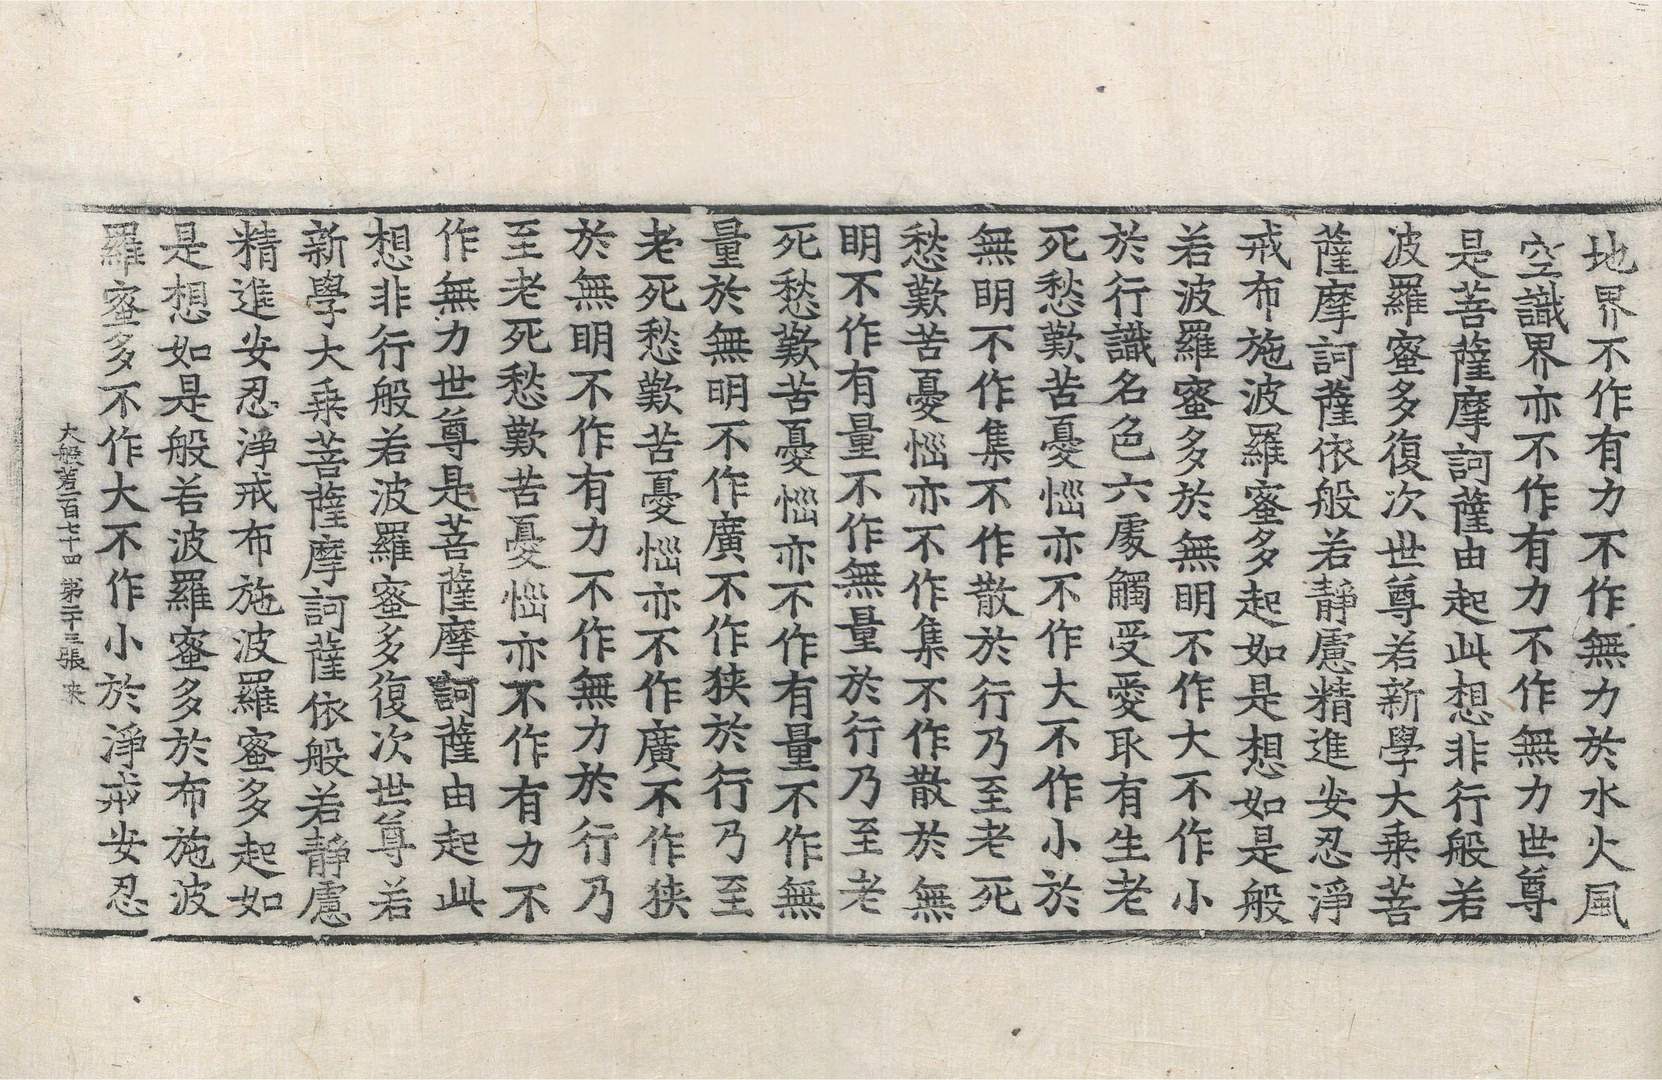 地界不作有力不作無力於水火風
空識界亦不作有力不作無力世尊
是菩薩摩訶薩由起此想非行般若
波羅蜜多復次世尊若新學大乗菩
薩摩訶薩依般若靜慮精進安忍淨
戒布施波羅蜜多起如是想如是般
若波羅蜜多於無明不作大不作小
於行識名色六處觸受愛取有生老
死愁歎苦憂惱亦不作大不作小於
無明不作集不作散於行乃至老死
愁歎苦憂惱亦不作集不作散於無
明不作有量不作無量於行乃至老
死愁歎苦憂惱亦不作有量不作無
量於無明不作廣不作狹於行乃至
老死愁歎苦憂惱亦不作廣不作狹
於無明不作有力不作無力於行乃
至老死愁歎苦憂惱亦不作有力不
作無力世尊是菩薩摩訶薩由起此
想非行般若波羅蜜多復次世尊若
新學大乗菩薩摩訶薩依般若靜慮
精進安忍淨戒布施波羅蜜多起如
是想如是般若波羅蜜多於布施波
羅蜜多不作大不作小於淨戒安忍
大般若一百七十四 第二十三張 来